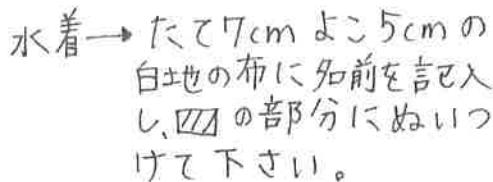 水着→たて7cmよこ5cmの
白地の布に名前を記入
し、▨の部分にぬいつ
けて下さい。